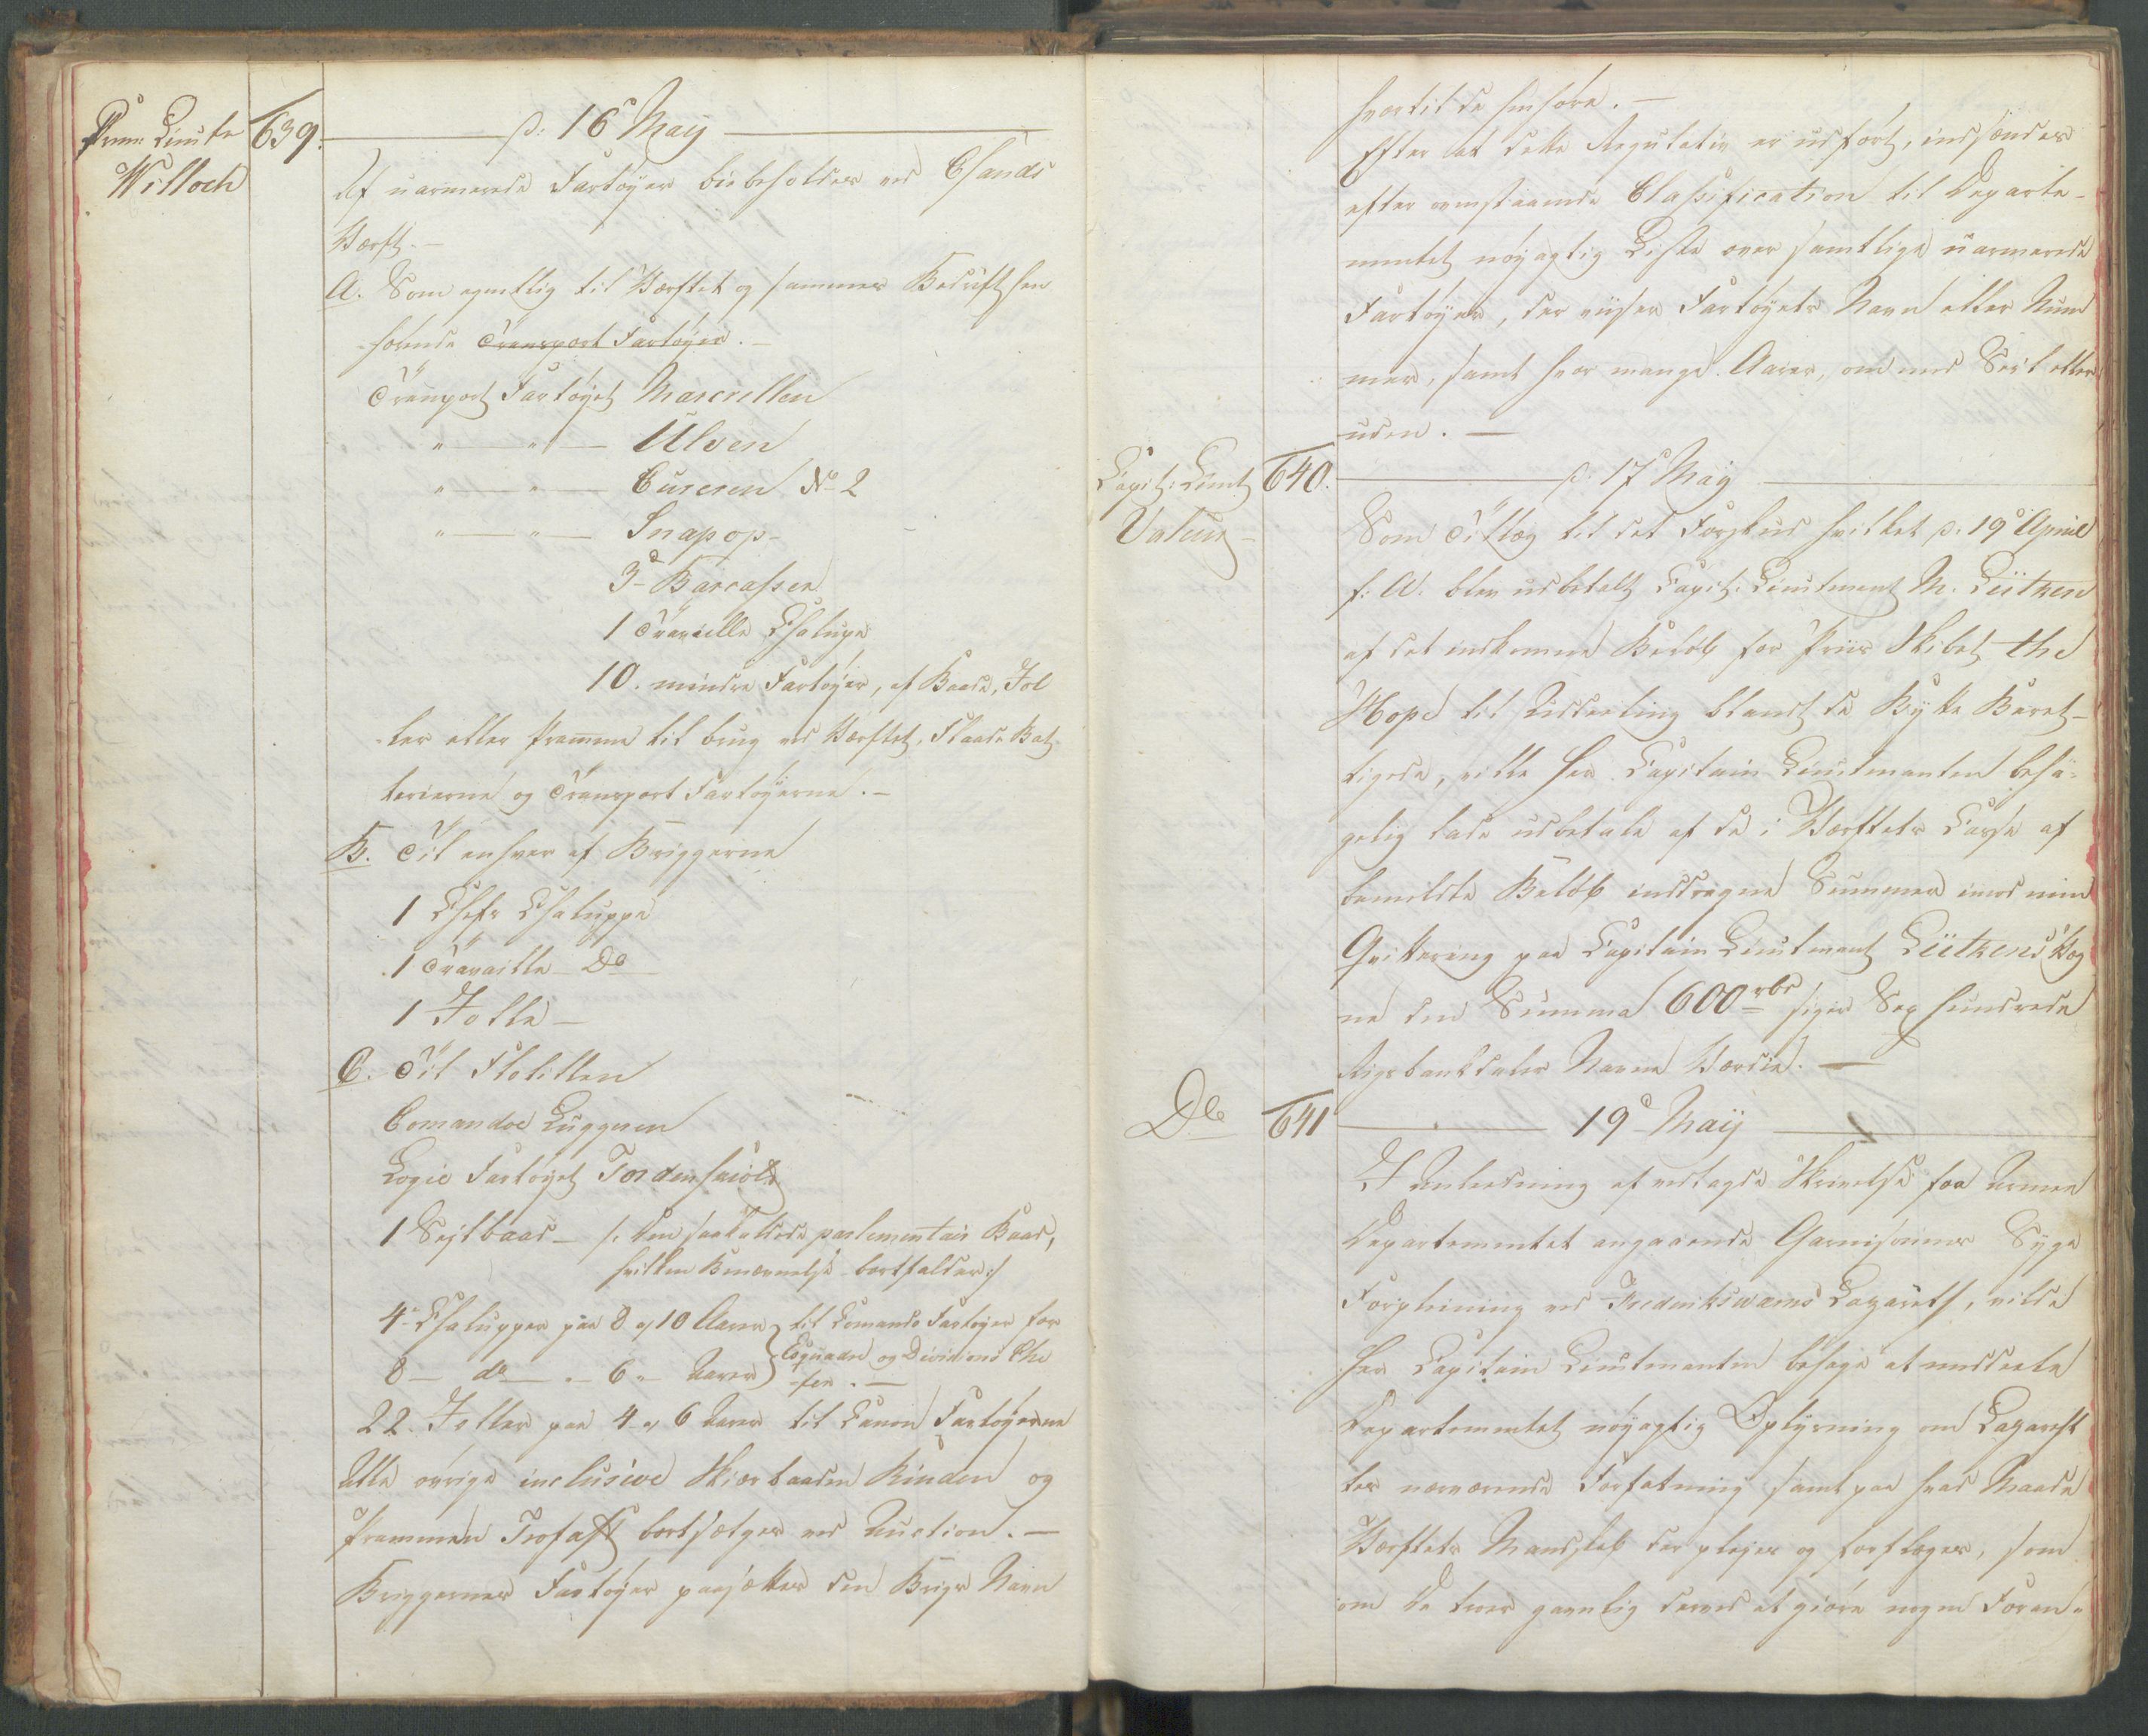 Prem: Lieute
Willoch
639.
p: 16de Maij
Af uarmerede Fartøyer bibeholdes ved Chsands
Værft. —
A. Som egentlig til Værftet og sammes Bedrift hen-
hørende Transport Fartøyer. —
Transport Fartøyet Macrellen
" — " — Ulven
" — " — Cureren No 2
" — " — Snapop
3de Barcasser
1 Travaille Chalupe
10. mindre Fartøyer, af Baade, Jol
ler eller Pramme til brug ved Værftet, Flaade Bat-
terierne og Transport Fartøyerne. —
B. Til enhver af Briggerne
1 Chefs Chaluppe
1 Travaille Do
1 Jolle —
C. Til Flotillen
Comandoe Luggeren
Logie Fartøyet Tordenskiold
1 Sejlbaad — /: den saakaldede parlementair Baad,
hvilken Benævnelse bortfalder :/
4 Chalupper paa 8 a 10 Aarer til Comando Fartøyer for
8 — do — " — 6 " — Aarer Esquadre og Divisions Che
fer. —
22. Joller paa 4 a 6 Aarer til Canon Fartøyerne
Alle øvrige inclusive Skiærbaaden Kinden og
Prammen Trofast bortsælges ved Auction. —
Briggernes Fartøyer paasættes den Brigs Navn
hvortil de henhøre. —
Efter at dette Regulativ er udført, indsendes
efter ovenstaaende Classification til Departe-
mentet nøyagtig Liste over samtlige uarmerede
Fartøyer, der viiser Fartøyets Navn eller Num
mer, samt hvor mange Aarer, om med Seil eller
uden. —
Capit: Lieut
Valeur
640.
p: 17de Maij
Som Tillæg til det Forskud hvilket p: 19de April
f: A. blev udbetalt Capit: Lieutenant M. Lütken
af det indkomne Beløb for Priis Skibet the
Hope til Uddeeling blandt de Bytte Beret-
tigede, ville Her Capitain Lieutenanten beha-
gelig lade udbetale af de i Værftets Casse af
bemeldte Beløb inddragne Summer imod min
Qvittering paa Capitain Lieutenant Lütkens Veg
ne den Summa 600 rbd siger Sex hundrede
Rigsbankdaler Navne Værdie. —
Do
641
19de Maij
I Anledning af modtagde Skrivelse fra Armee
Departementet angaaende Garnisonens Syge
Forpleining ved Frederiksværns Lazareth, vilde
Her Capitain Lieutenanten behage at meddeele
Departementet nøyagtig Oplysning om Lazareth
tes nærværende Forfatning samt paa hvad Maade
Værftets Mandskab der pleyes og forflæges, som
om De troer gavnlig derved at giøre nogen Foran-